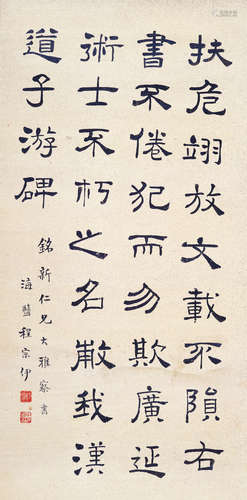 扶危翊放文載不隕右
書不倦犯而勿欺廣延
術士不朽之名敝我漢
道子游碑
銘新仁兄大雅察書
海鹽程宗伊